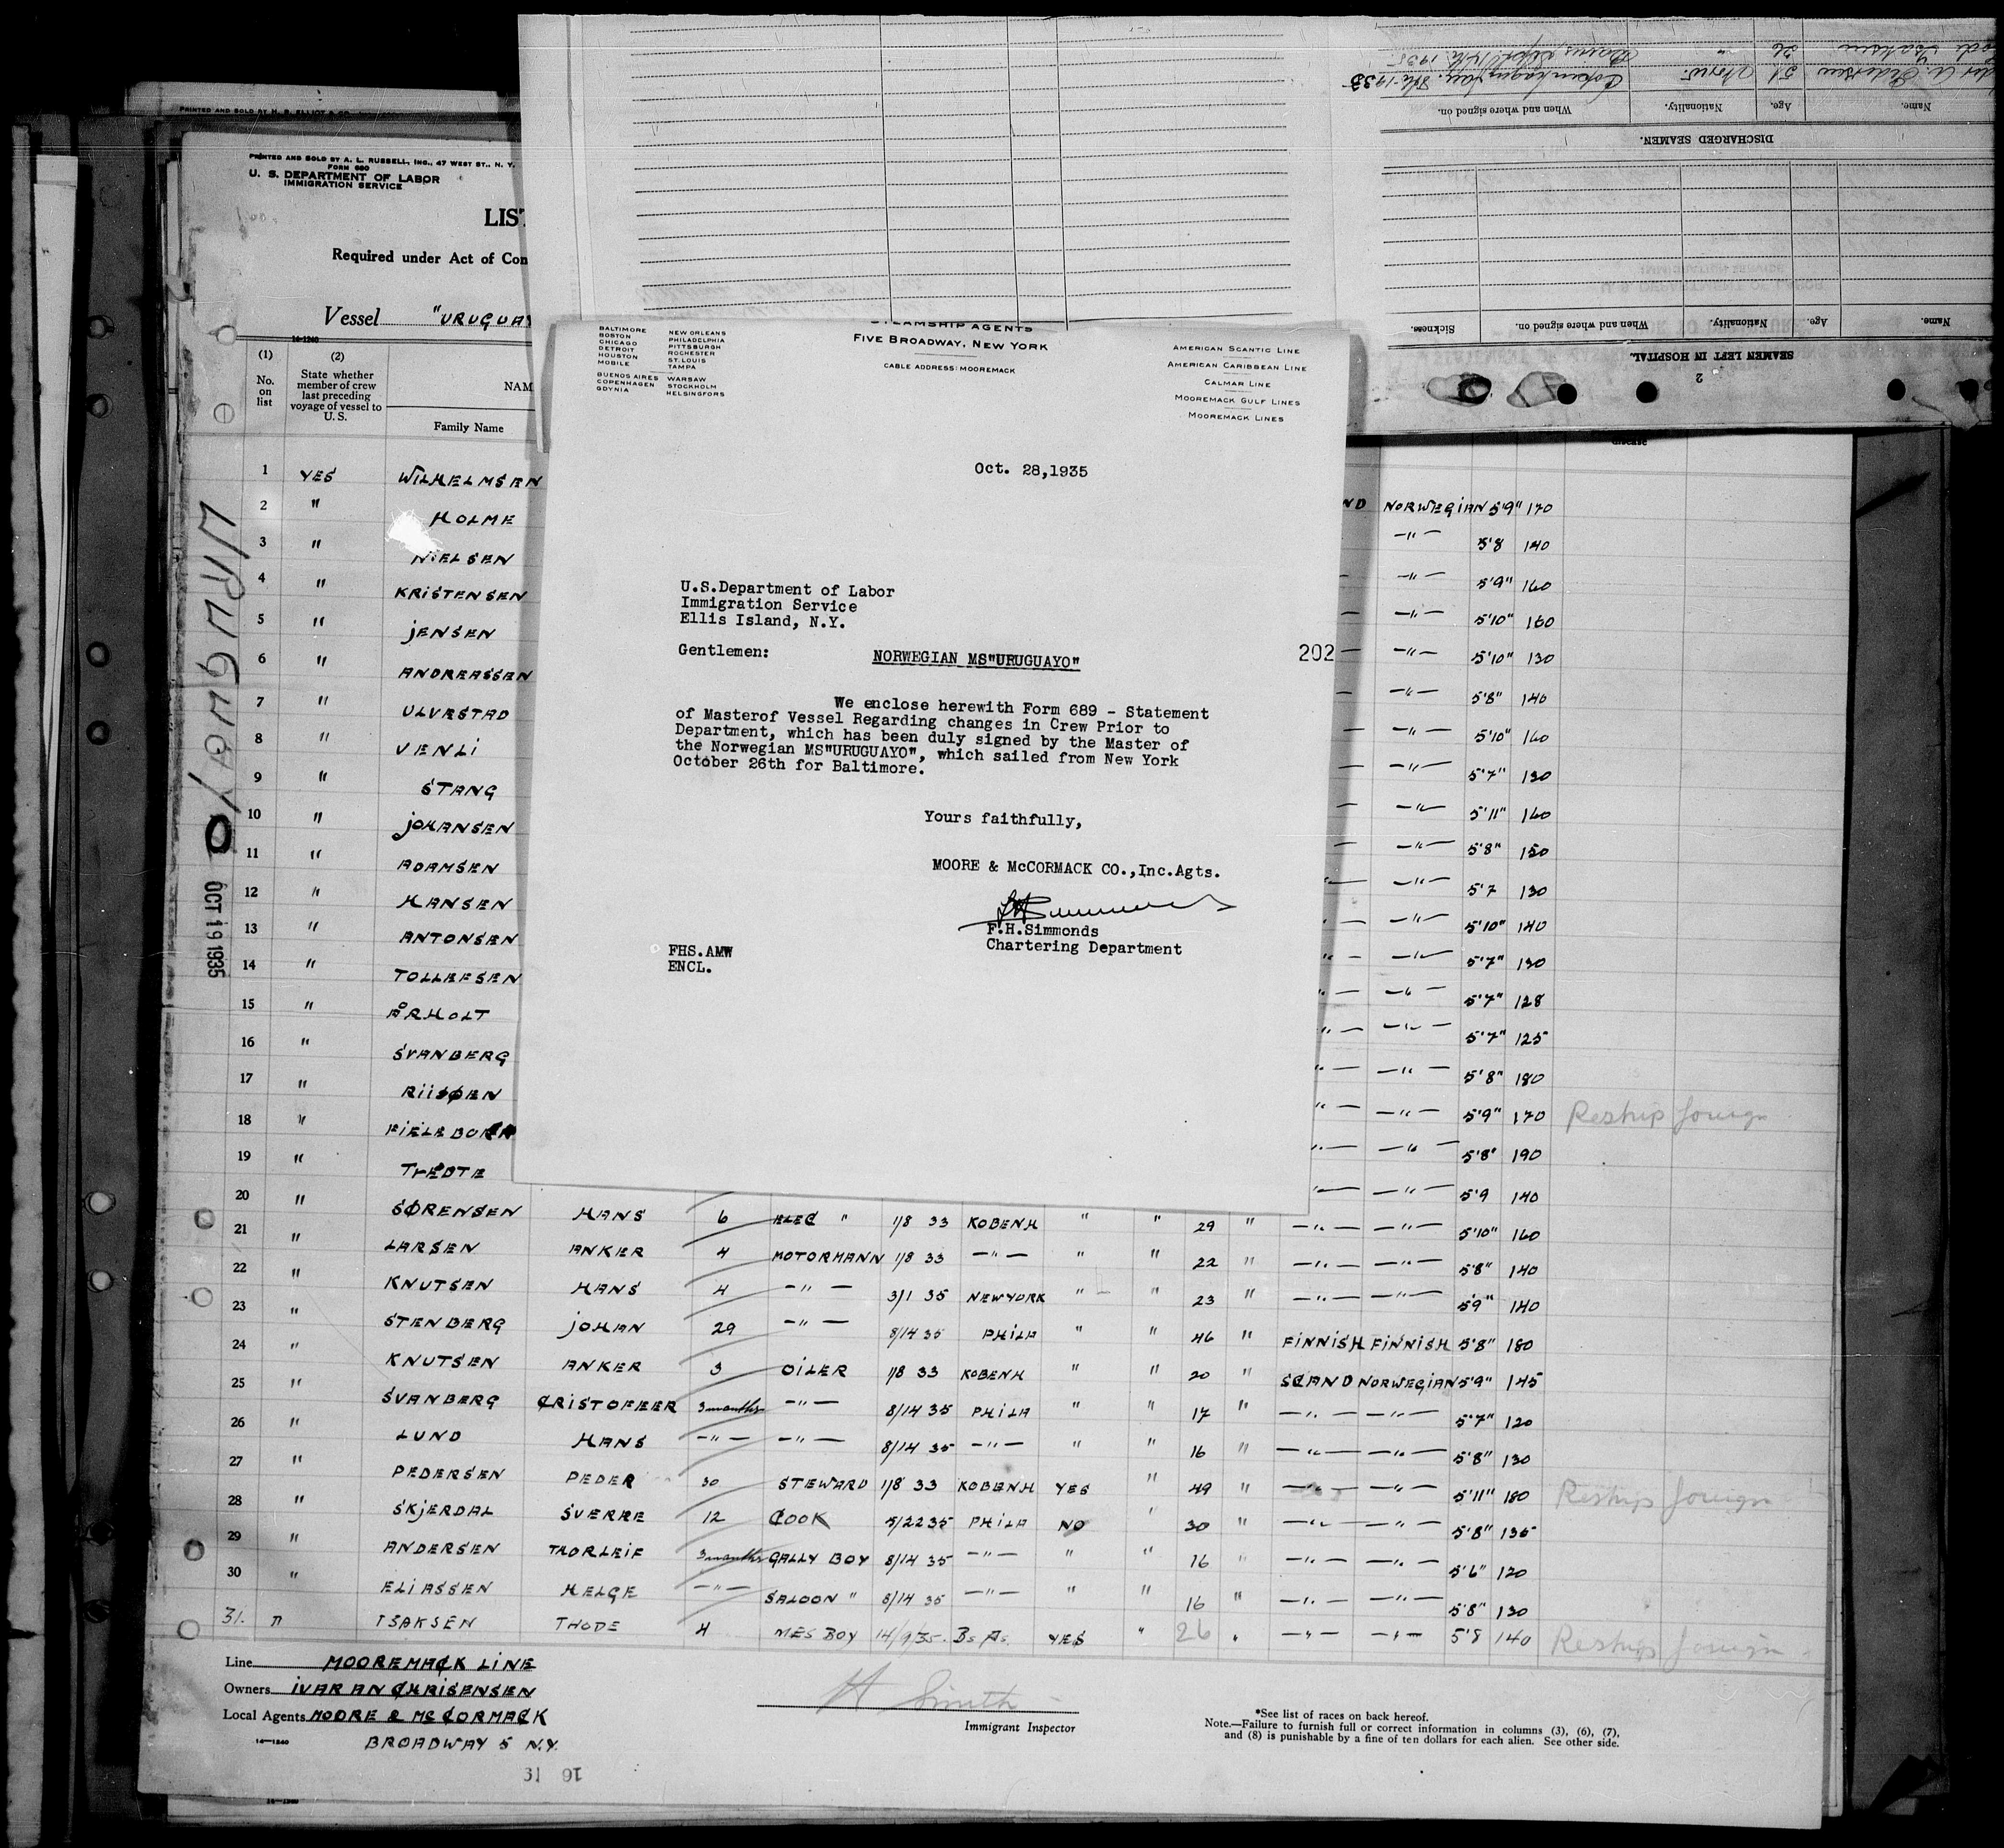 PRINTED AND SOLD BY H. B. ELLIOT & CO.
PRINTED AND SOLD BY A. L. RUSSELL, INC., 47 WEST ST., N. Y.
FORM 680
U. S. DEPARTMENT OF LABOR
IMMIGRATION SERVICE
LIST
Required under Act of Con
Vessel "URUGUAY
14-1240
(1) No. on list
(2) State whether member of crew last preceding voyage of vessel to U. S.
NAM
Family Name
disease
1 YES WILHELMSEN
2 " HOLME
3 " NIELSEN
4 " KRISTENSEN
5 " JENSEN
6 " ANDREASSEN
7 " ULVESTAD
8 " VENLI
9 " STANG
10 " JOHANSEN
11 " ADAMSEN
12 " HANSEN
13 " ANTONSEN
14 " TOLLEFSEN
15 " ÅRHOLT
16 " SVANBERG
17 " RIISØEN
18 "
19 "
ND NORWEGIAN 5'9" 170
—"— 5'8 140
—"— 5'9" 160
—"— 5'10" 160
—"— 5'10" 130
—"— 5'8" 140
—"— 5'10" 160
—"— 5'7" 130
—"— 5'11" 160
—"— 5'8" 150
—"— 5'7 130
—"— 5'10" 140
—"— 5'7" 130
—"— 5'7" 128
—"— 5'7" 125
—"— 5'8" 180
—"— 5'9" 170 Reship foreign
—"— 5'8" 190
—"— 5'9 140
20 " SØRENSEN HANS 6 ELEC " 1/8 33 KOBENH " " 29 " —"— —"— 5'10" 160
21 " LARSEN ANKER 4 MOTORMANN 1/8 33 —"— " " 22 " —"— —"— 5'8" 140
22 " KNUTSEN HANS 4 —"— 3/1 35 NEWYORK " " 23 " —"— —"— 5'9" 140
23 " STENBERG JOHAN 29 —"— 8/14 35 PHILA " " 46 " FINNISH FINNISH 5'8" 180
24 " KNUTSEN ANKER 3 OILER 1/8 33 KOBENH " " 20 " SCAND NORWEGIAN 5'9" 145
25 " SVANBERG CRISTOFFER 3 months —"— 8/14 35 PHILA " " 17 " —"— —"— 5'7" 120
26 " LUND HANS —"— —"— 8/14 35 —"— " " 16 " —"— —"— 5'8" 130
27 " PEDERSEN PEDER 30 STEWARD 1/8 33 KOBENH YES " 49 " —"— —"— 5'11" 180 Reship foreign
28 " SKJERDAL SVERRE 12 COOK 5/22 35 PHILA NO " 30 " —"— —"— 5'8" 135
29 " ANDERSEN THORLEIF 3 months GALLY BOY 8/14 35 —"— " " 16 " —"— —"— 5'6" 120
30 " ELIASSEN HELGE —"— SALOON " 8/14 35 —"— " " 16 " —"— —"— 5'8" 130
31. " ISAKSEN THODE 4 MES BOY 14/9/35. Bs As. YES " 26 " —"— —"— 5'8 140 Reship foreign
Line MOOREMACK LINE
Owners IVAR AN CHRISENSEN
Local Agents MOORE & MCCORMACK
14—1240
BROADWAY 5 N.Y.
H Smith
Immigrant Inspector
*See list of races on back hereof.
Note.—Failure to furnish full or correct information in columns (3), (6), (7),
and (8) is punishable by a fine of ten dollars for each alien. See other side.
URUGUAYO
OCT 19 1935
STEAMSHIP AGENTS
FIVE BROADWAY, NEW YORK
CABLE ADDRESS: MOOREMACK
BALTIMORE
BOSTON
CHICAGO
DETROIT
HOUSTON
MOBILE
BUENOS AIRES
COPENHAGEN
GDYNIA
NEW ORLEANS
PHILADELPHIA
PITTSBURGH
ROCHESTER
ST. LOUIS
TAMPA
WARSAW
STOCKHOLM
HELSINGFORS
AMERICAN SCANTIC LINE
AMERICAN CARIBBEAN LINE
CALMAR LINE
MOOREMACK GULF LINES
MOOREMACK LINES
Oct. 28,1935
U.S.Department of Labor
Immigration Service
Ellis Island, N.Y.
Gentlemen:
NORWEGIAN MS"URUGUAYO"
202
We enclose herewith Form 689 - Statement
of Masterof Vessel Regarding changes in Crew Prior to
Department, which has been duly signed by the Master of
the Norwegian MS"URUGUAYO", which sailed from New York
October 26th for Baltimore.
Yours faithfully,
MOORE & McCORMACK CO.,Inc.Agts.
F.H.Simmonds
Chartering Department
FHS.AMW
ENCL.
2
SEAMEN LEFT IN HOSPITAL.
Name. Age. Nationality. When and where signed on. Sickness.
DISCHARGED SEAMEN.
Name. Age. Nationality. When and where signed on.
Pedersen 51 Norw. Copenhagen Jan. 8th-1933
Isaksen 26 "